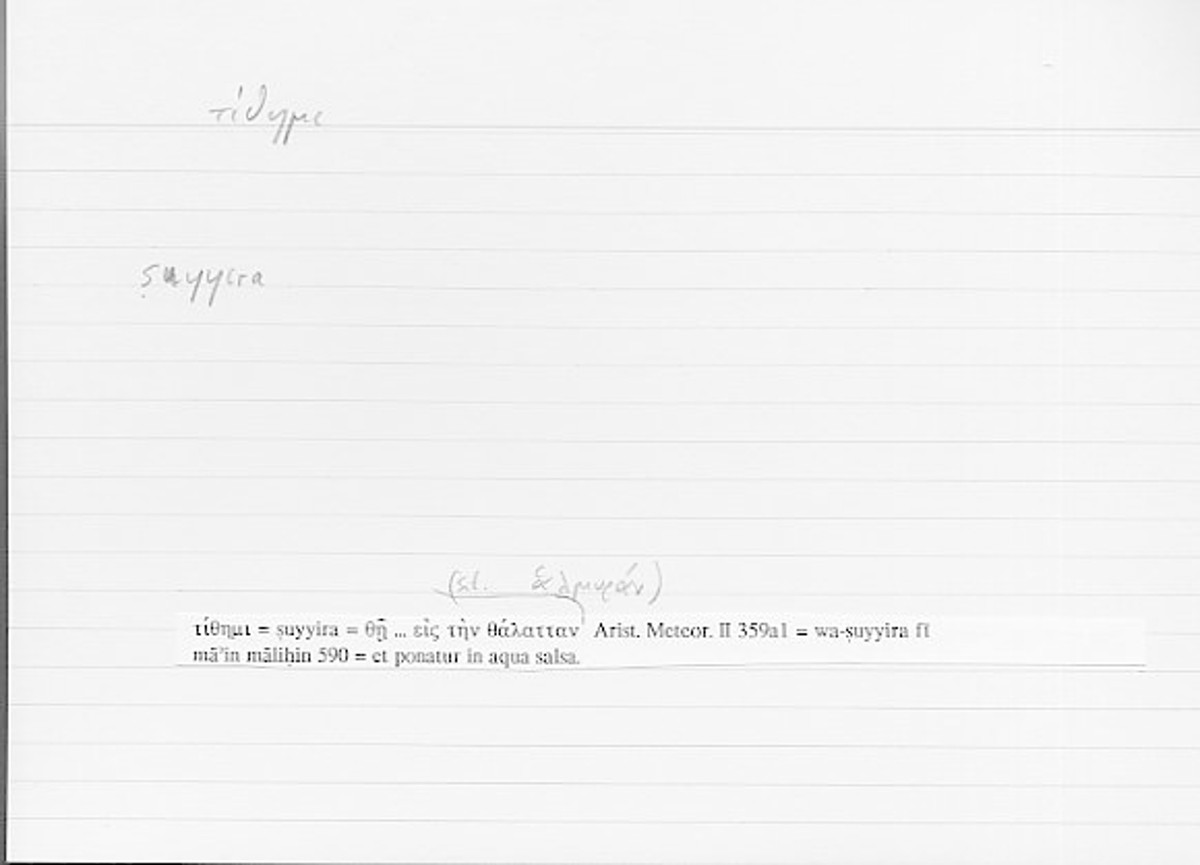 τίθημι
ṣuyyira
(sl. ἁλμυράν)
τίθημι = ṣuyyira = θῇ ... εἰς τὴν θάλατταν Arist. Meteor. II 359a1 = wa-ṣuyyira fī
māʾin māliḥin 590 = et ponatur in aqua salsa.